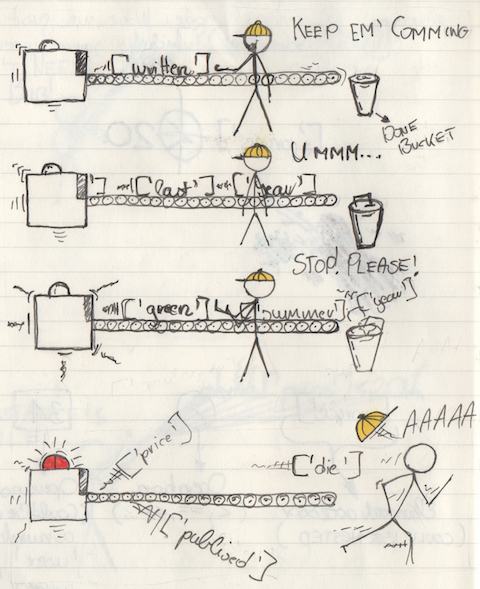 KEEP EM' COMMING
['written']
DONE
BUCKET
UMMM...
'] ['last'] ['year']
STOP! PLEASE!
['green'] 'summer'] ['year']
AAAAA
['price']
['die']
['publised']